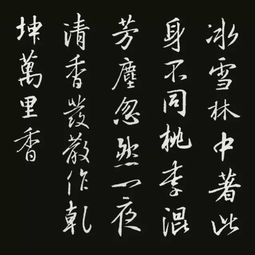 冰雪林中著此
身不同桃李混
芳塵忽然一夜
清香發散作乾
坤萬里香